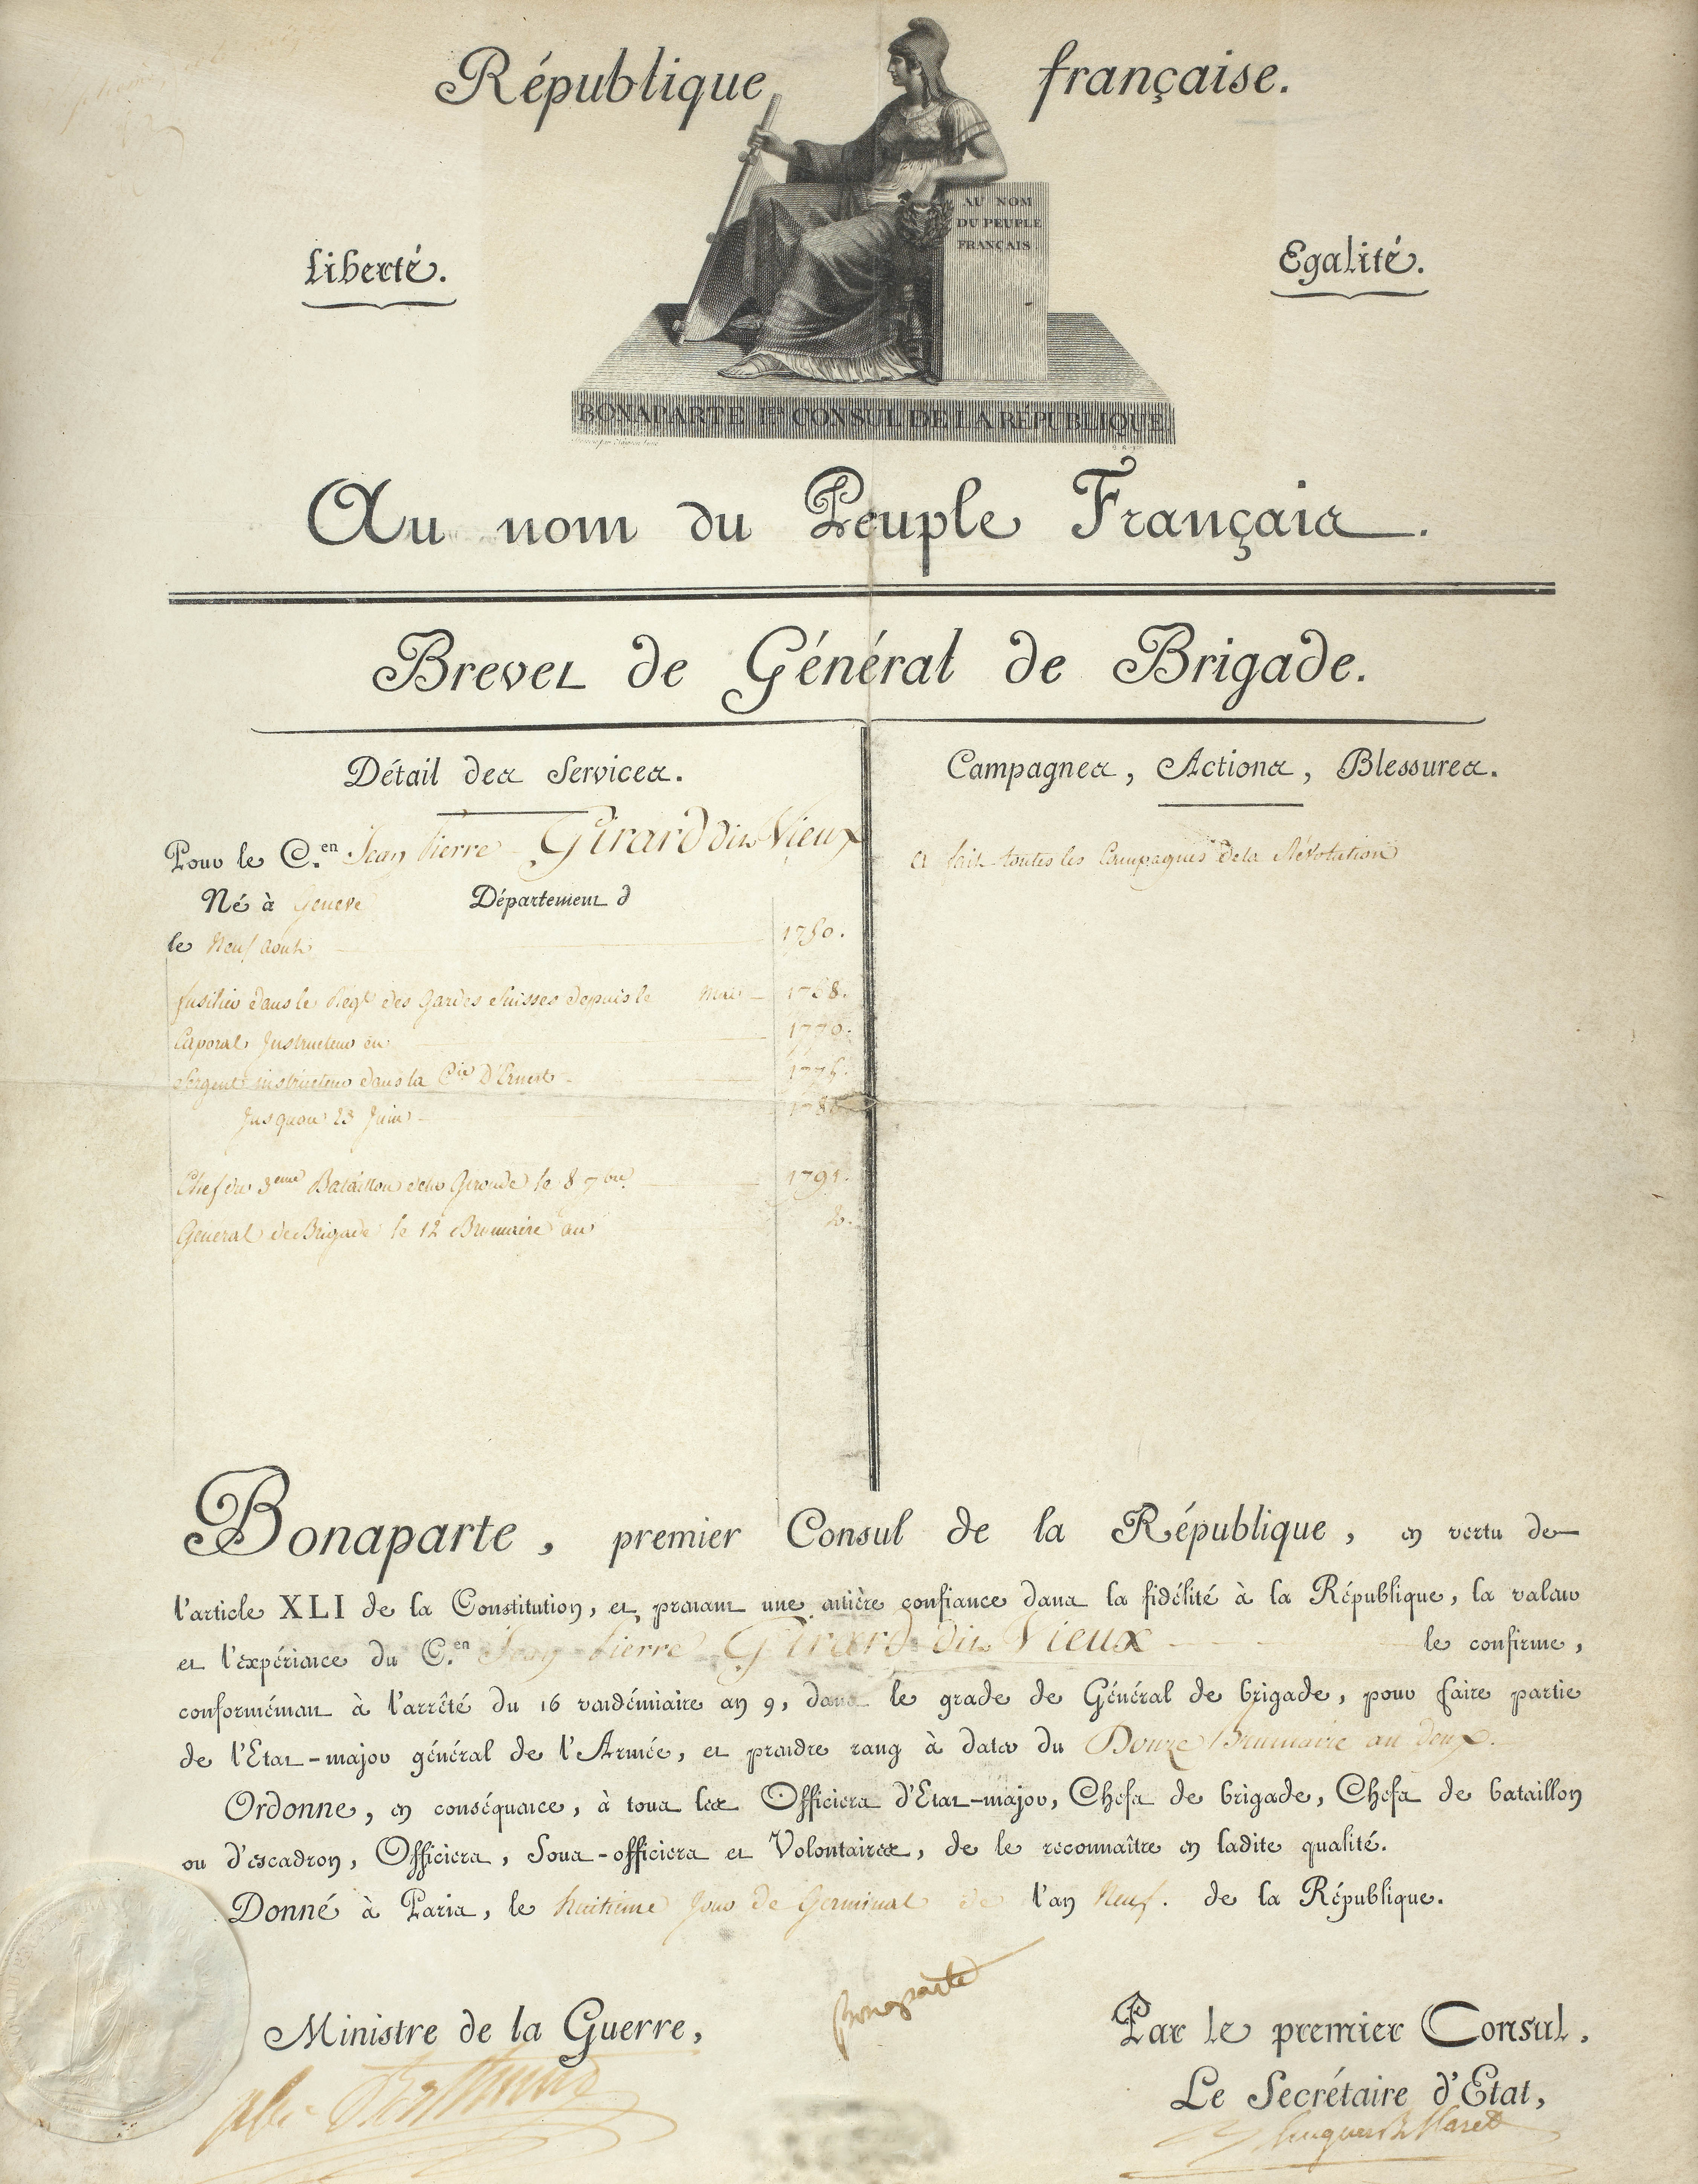 République française.
AU NOM
DU PEUPLE
FRANÇAIS
Liberté. Egalité.
BONAPARTE 1er CONSUL DE LA RÉPUBLIQUE
Au nom du Peuple Français.
Brevet de Général de Brigade.
Détail des Services.
Campagnes, Actions, Blessures.
Pour le C.en Jean Pierre Girard dit Vieux
Né à Geneve Département d
le Neuf aout 1750.
fusilier dans le Regt des Gardes Suisses depuis le 1768.
Caporal Instructeur en 1770.
Sergent instructeur dans la Cie D'Ernest
Jusqu'au 23 Juin
Chef du 3eme Bataillon de la Gironde le 8 7bre 1791.
General de Brigade le 12 Brumaire an 2.
a fait toutes les Campagnes de la Révolution
Bonaparte, premier Consul de la République, en vertu de
l'article XLI de la Constitution, et prenant une entière confiance dans la fidélité à la République, la valeur
et l'expérience du C.en Jean Pierre Girard dit Vieux le confirme,
conformément à l'arrêté du 16 vendémiaire an 9, dans le grade de Général de brigade, pour faire partie
de l'Etat-major général de l'Armée, et prendre rang à dater du Douze Brumaire an deux.
Ordonne, en conséquence, à tous les Officiers d'Etat-major, Chefs de brigade, Chefs de bataillon
ou d'escadron, Officiers, Sous-officiers et Volontaires, de le reconnaître en ladite qualité.
Donné à Paris, le huitieme Jour de Germinal de l'an Neuf. de la République.
Bonaparte
Ministre de la Guerre,
Alex Berthier
Par le premier Consul.
Le Secrétaire d'Etat,
Hugues B. Maret